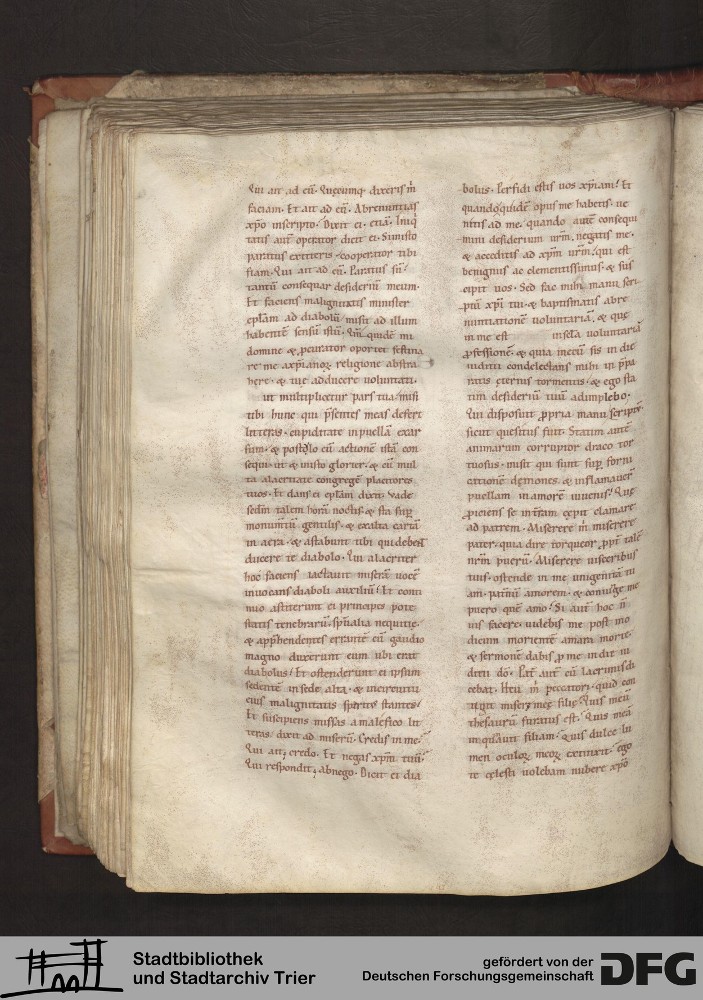 Qui ait ad eū. Quęcumq; dixeris m̄
faciam. Et ait ad eū. Abrenuntias
xp̄o inscripto. Dixit ei. etiā. Iniq̇
tatis aut̄ operator dicit ei. Si in isto
paratus extiteris, cooperator tibi
fiam. Qui ait ad eū. Paratus sū
tantū consequar desideriū meum.
Et faciens malignitatis minister
ep̄lam ad diabolū, misit ad illum
habentē sensū istū. Qm̄ quidē mi
domine & p̱curator oportet festina
re me a xp̄ianoꝝ religione abstra
here. & tuę adducere voluntati.
ut multiplicetur pars tua, misi
tibi hunc qui p̄sentes meas defert
litteras. cupiditate in puellā exar
sum. & postulo eū actionē istā con
sequi. ut & in isto glorier. & cū mul
ta alacritate congregē placitores
tuos. Et dans ei ep̄lam dixit. Vade
sedm̄ talem horā noctis. & sta sup̱
monumtū gentilis. & exalta cartā
in aera. & astabunt tibi qui debent
ducere te diabolo. Qui alacriter
hoc faciens iactauit miserā vocē
inuocans diaboli auxiliū. Et conti
nuo astiterunt ei principes pote
statis tenebrarū. sp̄ualia nequitię.
& app̄hendentes errantē eū gaudio
magno duxerunt eum ubi erat
diabolus. Et ostenderunt ei ipsum
sedentē in sede alta. & in circuitu
eius malignitatis spiritus stantes.
Et suscipiens missas a malefico lit
teras. dixit ad miserū. Credis in me?
Qui ait; credo. Et negas xp̄m tuū?
Qui respondit; abnego. Dicit ei dia
bolus. Perfidi estis uos xp̄iani. Et
quando quidē opus me habetis. ue
nitis ad me. quando autē consequi
mini desiderium urm̄. negatis me.
& acceditis ad xp̄m urm̄. qui est
benignus ac clementissimus. & sus
cipit uos. Sed fac mihi manu scri
ptū xp̄i tui. & baptismatis abre
nuntiationē voluntariā. & quę
in me est in scl̄a voluntariā
p̱fessionē. & quia mecū sis in die
iudicii condelectans mihi in p̄pa
ratis ęternis tormentis. & ego sta
tim desideriū tuū adimplebo.
Qui disposuit p̱pria manu scriptū.
sicut quesitus fuit. Statim autē
animarum corruptor draco tor
tuosus. misit qui sunt sup̱ forni
cationē dęmones. & inflamauer̄
puellam in amorē iuuenis. Quę
p̱iciens se in t̄ram cępit clamare
ad patrem. Miserere m̄ miserere
pater. quia dire torqueor p̱pt̄ talē
nrm̄ puerū. Miserere uisceribus
tuis. ostende in me unigenitā tu
am. patnū amorem. & coniu̇ge me
puero quē amo. Si aut̄ hoc n̄
uis facere. uidebis me post mo
dicum morientē amara morte.
& sermonē dabis p̱ me in die iu
dicii dō. Pat̄ aut̄ cū lacrimis di
cebat. Heu m̄ peccatori. quid con
tigit miserę meę filię. Quis meū
thesaurū furatus est. Quis meā
inq̇nauit filiam. Quis dulce lu
men oculoꝝ meoꝝ extinxit. ego
te cęlesti uolebam nubere xp̄o
Stadtbibliothek
und Stadtarchiv Trier
gefördert von der
Deutschen Forschungsgemeinschaft
DFG